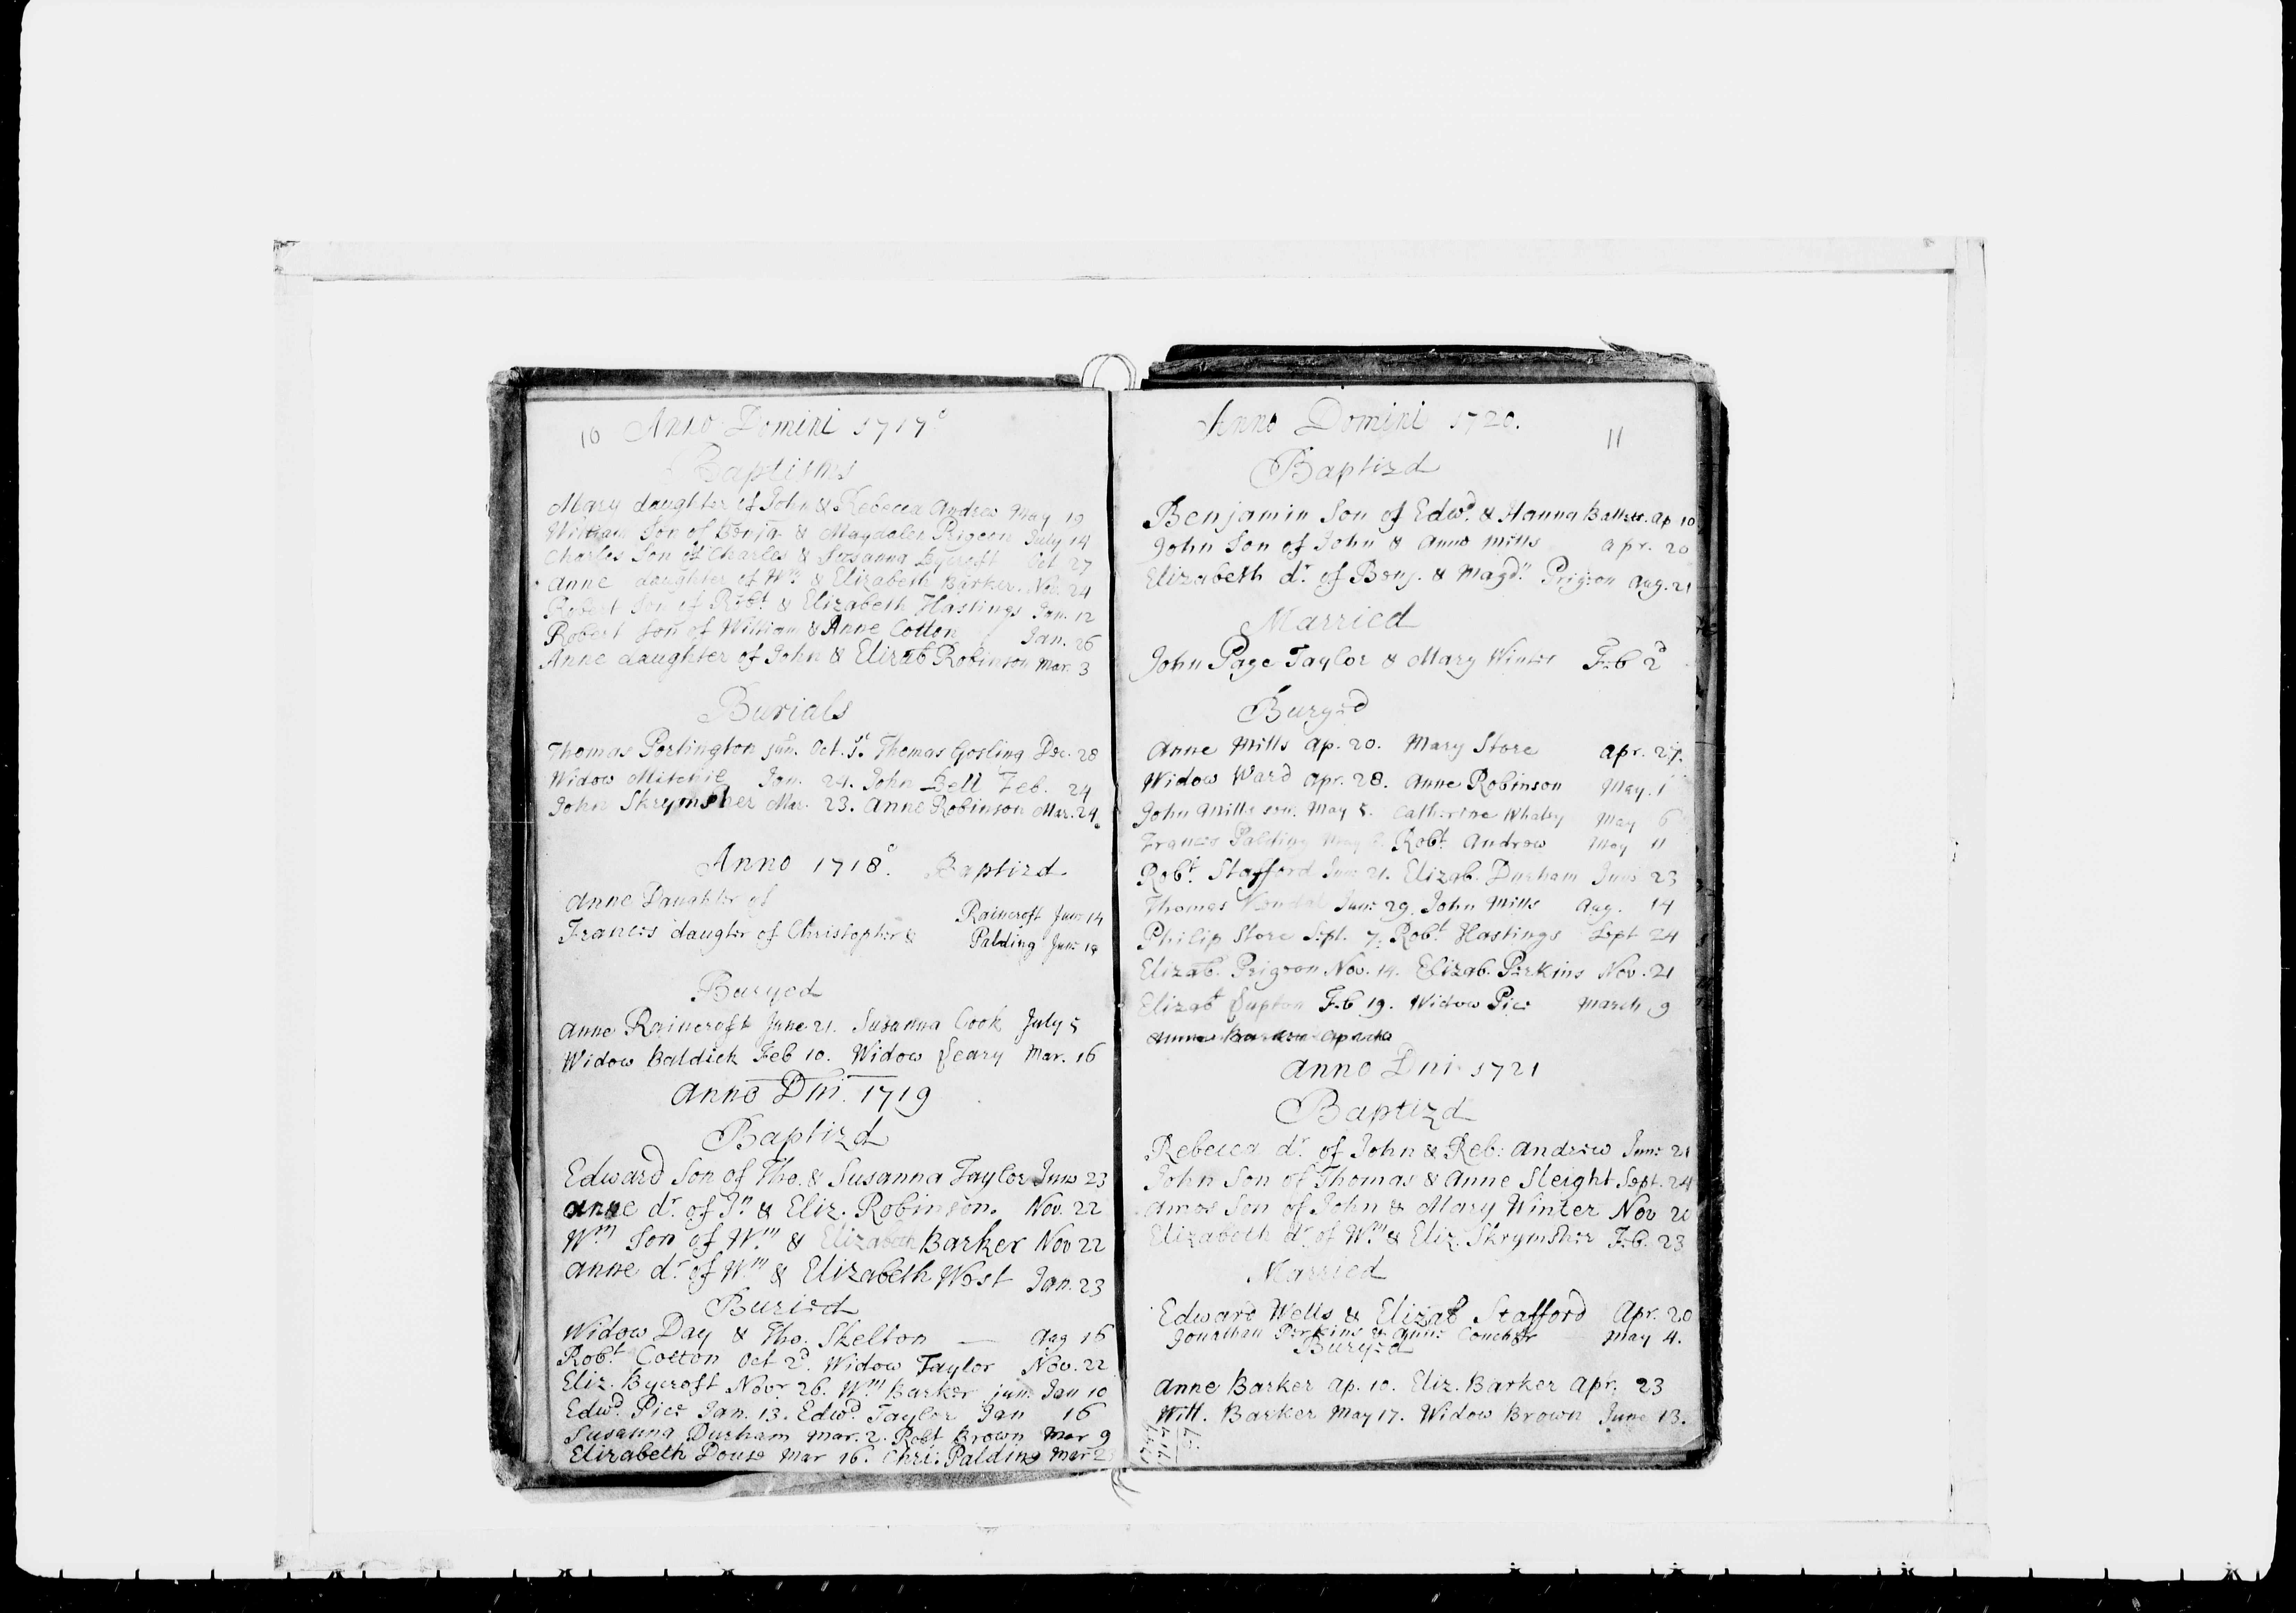 10 Anno Domini 1717°
Baptisms
Mary daughter of John & Rebecca Andrew May 19
William Son of Benja. & Magdalen Prigeon July 14
Charles Son of Charles & Susanna Bycroft Oct 27
Anne daughter of Wm & Elizabeth Barker. Nov. 24
Robert Son of Robt. & Elizabeth Hastings Jan. 12
Robert Son of William & Anne Cotton Jan. 26
Anne daughter of John & Elizab Robinson Mar. 3
Burials
Thomas Portington jun. Oct. Thomas Gosling Dec. 28
Widow Jan. 24. John Bell Feb. 24
John Skrymsher Mar. 23. Anne Robinson Mar. 24
Anno 1718°. Baptizd
Anne Daughter of Raincroft June 14
Frances daughter of Christopher & Palding June
Buryed
Anne Raincroft June 21. Susanna Cook July 5
Widow Baldick Feb 10. Widow Seary Mar. 16
Anno Dni. 1719
Baptizd
Edward Son of Tho. & Susanna Taylor June 23
Anne dr. of Jn & Eliz. Robinson. Nov. 22
Wm Son of Wm & Elizabeth Barker Nov 22
Anne dr. of Wm & Elizabeth West Jan. 23
Buried
Widow Day & Tho. Skelton — Aug 16
Robt. Cotton Oct 2d. Widow Taylor Nov. 22
Eliz. Bycroft Novr 26. Wm Barker jun. Jan 10
Edwd. Pice Jan. 13. Edwd. Taylor Jan 16
Susanna Durham Mar. 2. Robt Brown Mar 9
Elizabeth Douse Mar 16. Chri: Palding Mar
Anno Domini 1720.
11
Baptizd
Benjamin Son of Edwd. & Hanna ap 10
John Son of John & Anne Mills apr. 20
Elizabeth dr. of Benj. & Magdn Prigeon Aug. 21
Married
John Page Taylor & Mary Winter Feb 2d
Buryed
Anne Mills ap. 20. Mary Store apr. 27.
Widow Ward apr. 28. Anne Robinson May. 1
John Mills sen. May 5. Catherine Whaley May 6
Frances Palding May Robt Andrew May 11
Robt. Stafford June 21. Elizab. Durham June 23
Thomas Kendal June 29. John Mills Aug. 14
Philip Store Sept. 7. Robt Hastings Sept 24
Elizab. Prigeon Nov. 14. Elizab. Perkins Nov. 21
Elizabt Supton Feb 19. Widow Pice March 9
Anno Dni 1721
Baptizd
Rebecca dr. of John & Reb: Andrew June 21
John Son of Thomas & Anne Sleight Sept. 24
Amos Son of John & Mary Winter Nov 20
Elizabeth dr. of Wm & Eliz. Skrymsher Feb. 23
Married
Edward Wells & Elizab Stafford Apr. 20
Jonathan Perkins & Anne May 4.
Buryed
Anne Barker ap. 10. Eliz. Barker apr. 23
Will. Barker May 17. Widow Brown June 13.